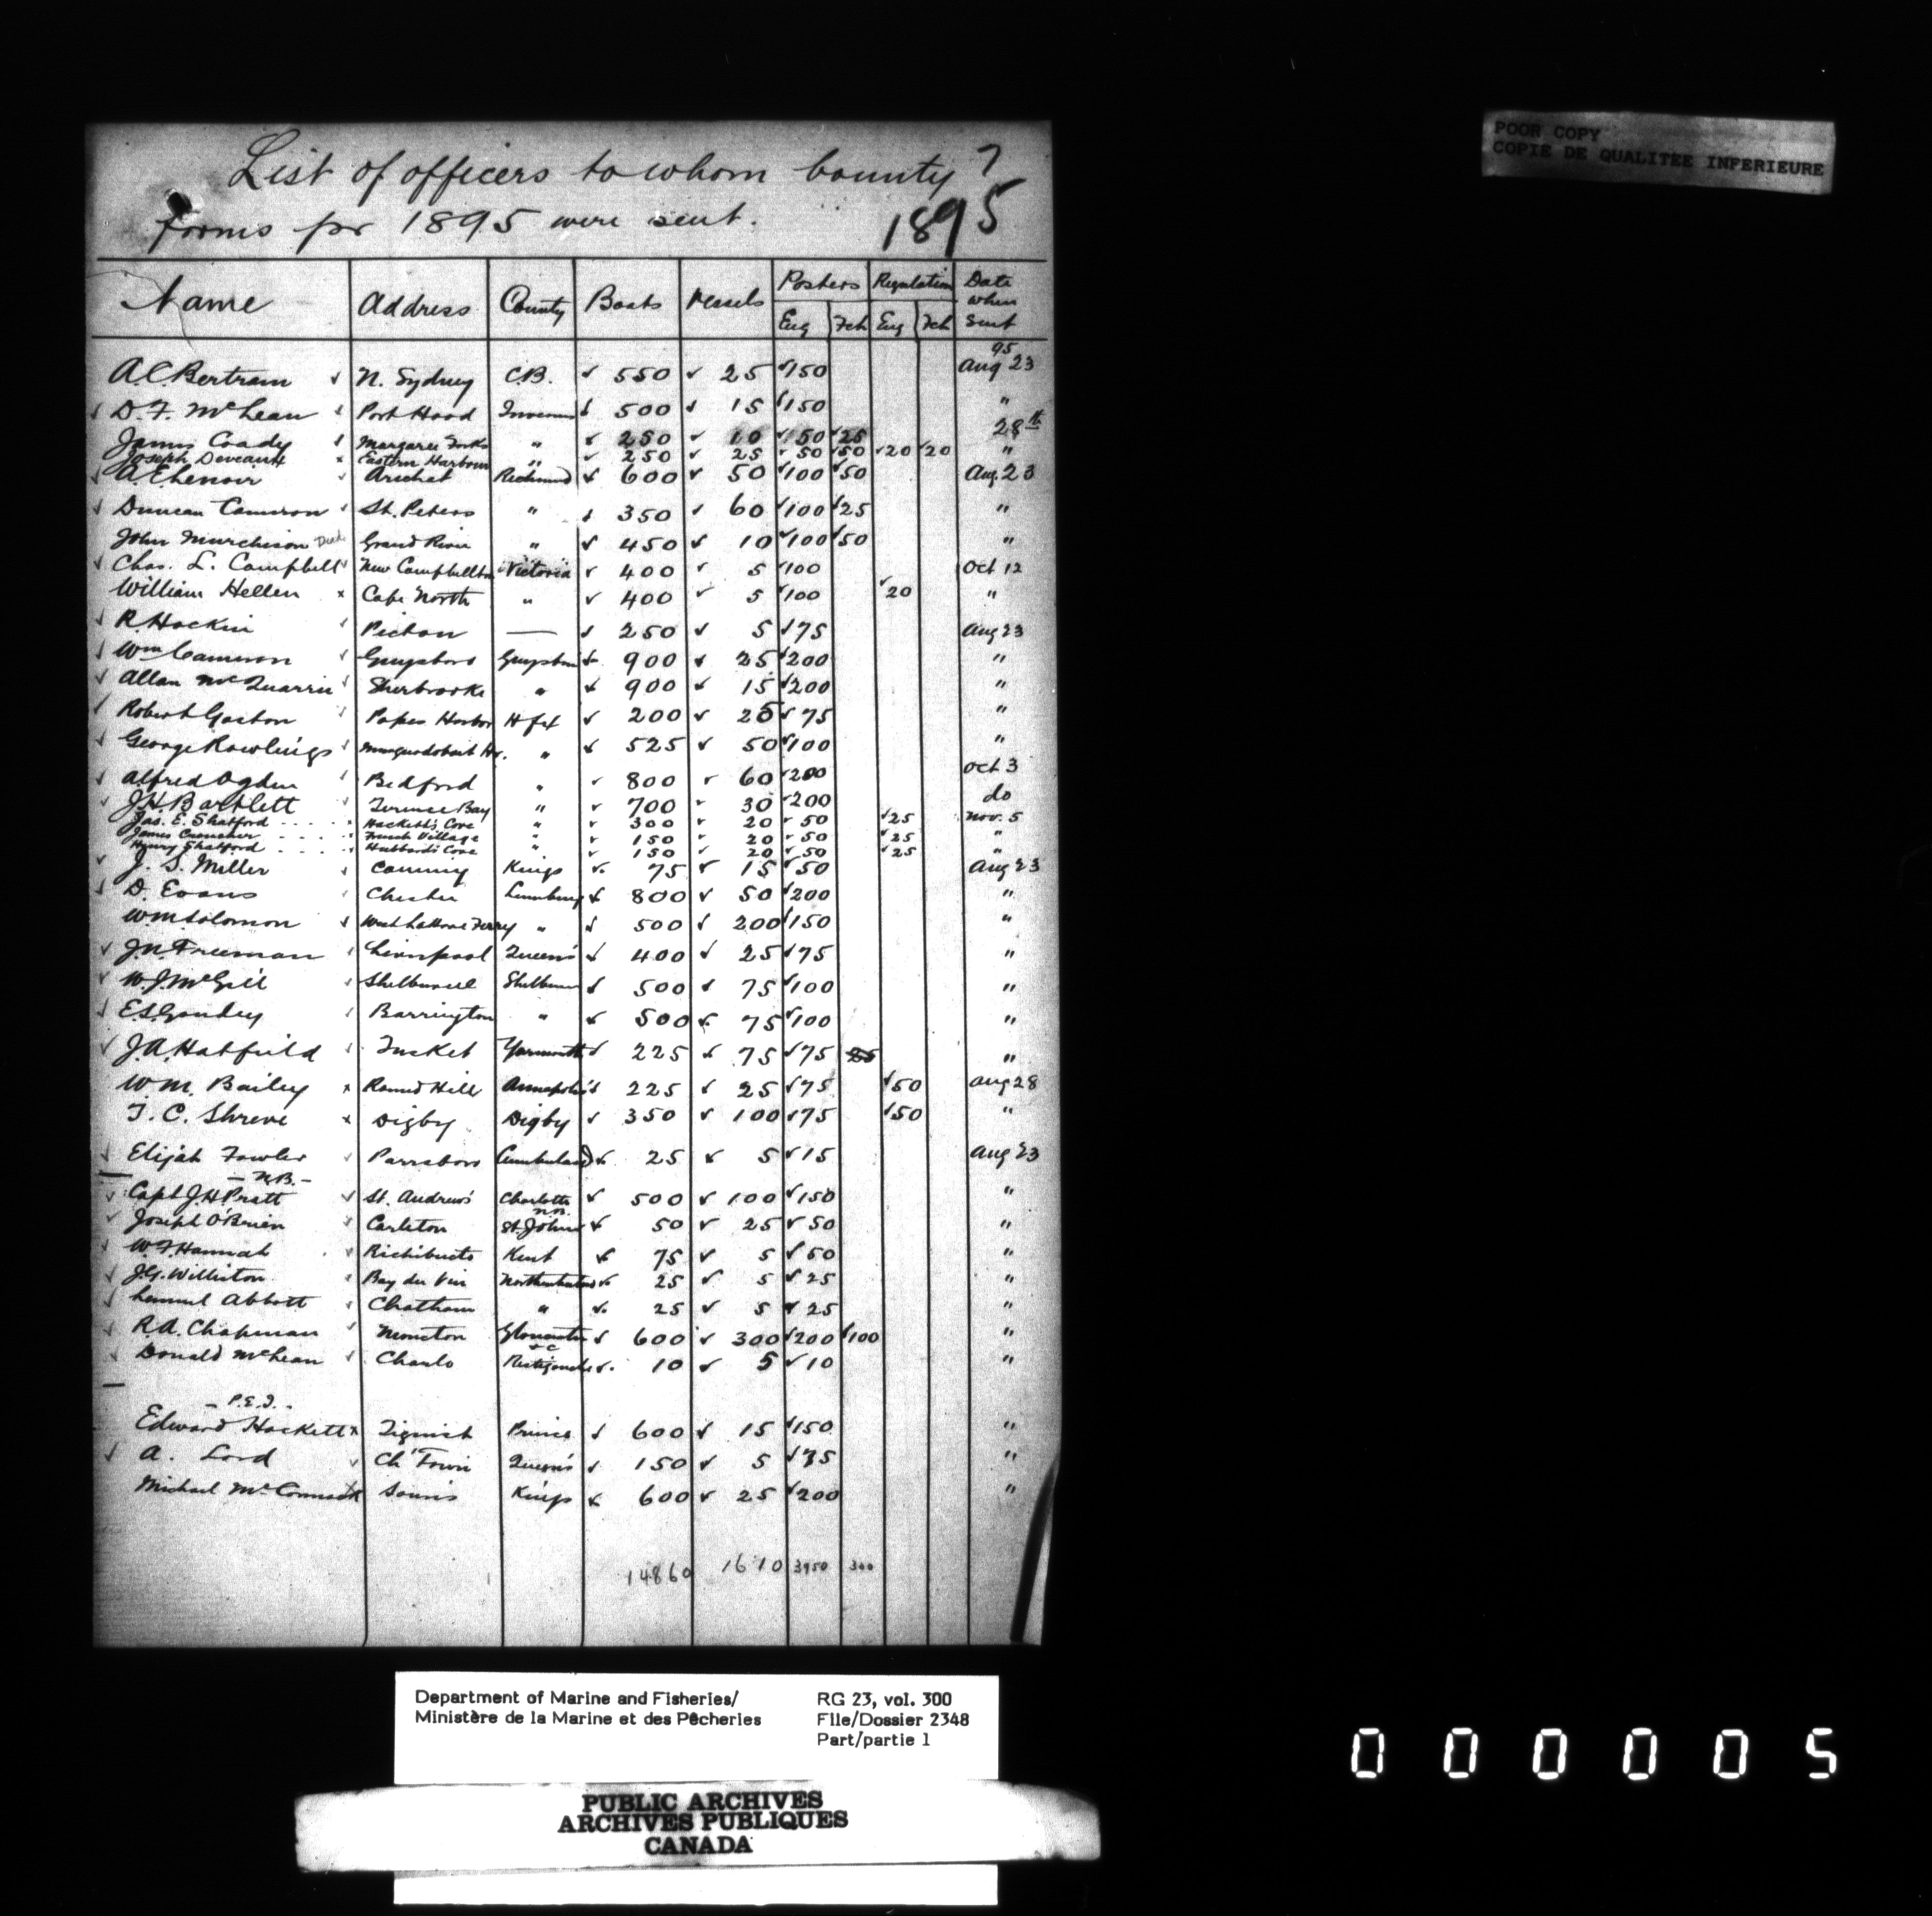 List of officers to whom bounty 7
forms for 1895 were sent. 1895
Name Address County Boats Vessels Posters Regulation Date when sent
Eng Fch Eng Fch
95
A.C. Bertram ✓ N. Sydney C.B. ✓ 550 ✓ 25 ✓150 Aug 23
✓ D. F. McLean ✓ Port Hood Inverness ✓ 500 ✓ 15 ✓150 "
James Coady ✓ Margaree Forks " ✓ 250 ✓ 10 ✓150 ✓25 28th
Joseph Deveaux x Eastern Harbour " ✓ 250 ✓ 25 ✓ 50 ✓50 ✓20 ✓20 "
✓ A. E. Lenoir ✓ Arichat Richmond ✓ 600 ✓ 50 ✓100 ✓50 Aug. 23
✓ Duncan Cameron ✓ St. Peters " ✓ 350 ✓ 60 ✓100 ✓25 "
John Murchison Dead Grand River " ✓ 450 ✓ 10 ✓100 ✓50 "
✓ Chas. L. Campbell ✓ New Campbellton Victoria ✓ 400 ✓ 5 ✓100 Oct 12
William Hellen x Cape North " ✓ 400 ✓ 5 ✓100 ✓20 "
✓ R. Hockin ✓ Pictou — ✓ 250 ✓ 5 ✓75 Aug 23
✓ Wm Cameron ✓ Guysboro Guysboro ✓ 900 ✓ 25 ✓200 "
✓ Allan McQuarrie ✓ Sherbrooke " ✓ 900 ✓ 15 ✓200 "
✓ Robert Gaston ✓ Popes Harbor Hfx ✓ 200 ✓ 25 ✓ 75 "
✓ George Rowlings ✓ Musquodoboit Hr. " ✓ 525 ✓ 50 ✓100 "
✓ Alfred Ogden ✓ Bedford " ✓ 800 ✓ 60 ✓200 Oct 3
✓ J.H. Bartlett ✓ Terence Bay " ✓ 700 ✓ 30 ✓200 do
Jas. E. Shatford Hackett's Cove " ✓ 300 ✓ 20 ✓ 50 ✓25 Nov. 5
James Croucher French Village " ✓ 150 ✓ 20 ✓ 50 ✓25 "
Henry Shatford Hubbard's Cove " ✓ 150 ✓ 20 ✓ 50 ✓25 "
✓ J. S. Miller ✓ Canning Kings ✓ 75 ✓ 15 ✓50 Aug 23
✓ D. Evans ✓ Chester Lunenburg ✓ 800 ✓ 50 ✓200 "
W.M. Solomon ✓ West LaHave Ferry " ✓ 500 ✓ 200 ✓150 "
✓ J.N. Freeman ✓ Liverpool Queen's ✓ 400 ✓ 25 ✓75 "
✓ W.J. McGill ✓ Shelburne Shelburne ✓ 500 ✓ 75 ✓100 "
✓ E.S. Goudey ✓ Barrington " ✓ 500 ✓ 75 ✓100 "
✓ J.A. Hatfield ✓ Tusket Yarmouth ✓ 225 ✓ 75 ✓75 25 "
W.M. Bailey x Round Hill Annapolis ✓ 225 ✓ 25 ✓75 ✓50 Aug 28
T. C. Shreve x Digby Digby ✓ 350 ✓ 100 ✓75 ✓50 "
✓ Elijah Fowler ✓ Parrsboro Cumberland ✓ 25 ✓ 5 ✓15 Aug 23
— N.B. —
✓ Capt J.H. Pratt ✓ St. Andrews Charlotte ✓ 500 ✓ 100 ✓150 "
N.B.
✓ Joseph O'Brien ✓ Carleton St. Johns ✓ 50 ✓ 25 ✓ 50 "
✓ W.F. Hannah ✓ Richibucto Kent ✓ 75 ✓ 5 ✓ 50 "
✓ J.G. Williston ✓ Bay du Vin Northumberland ✓ 25 ✓ 5 ✓ 25 "
✓ Lemuel Abbott ✓ Chatham " ✓ 25 ✓ 5 ✓ 25 "
✓ R.A. Chapman ✓ Moncton Gloucester &c ✓ 600 ✓ 300 ✓200 ✓100 "
✓ Donald McLean ✓ Charlo Restigouche ✓ 10 ✓ 5 ✓10 "
— P.E.I. —
Edward Hackett x Tignish Prince ✓ 600 ✓ 15 ✓150 "
✓ A. Lord ✓ Ch'Town Queen's ✓ 150 ✓ 5 ✓75 "
Michael McCormack x Souris Kings ✓ 600 ✓ 25 ✓200 "
14860 1610 3950 300
POOR COPY
COPIE DE QUALITEE INFERIEURE
Department of Marine and Fisheries/
Ministère de la Marine et des Pêcheries
RG 23, vol. 300
File/Dossier 2348
Part/partie 1
PUBLIC ARCHIVES
ARCHIVES PUBLIQUES
CANADA
000005